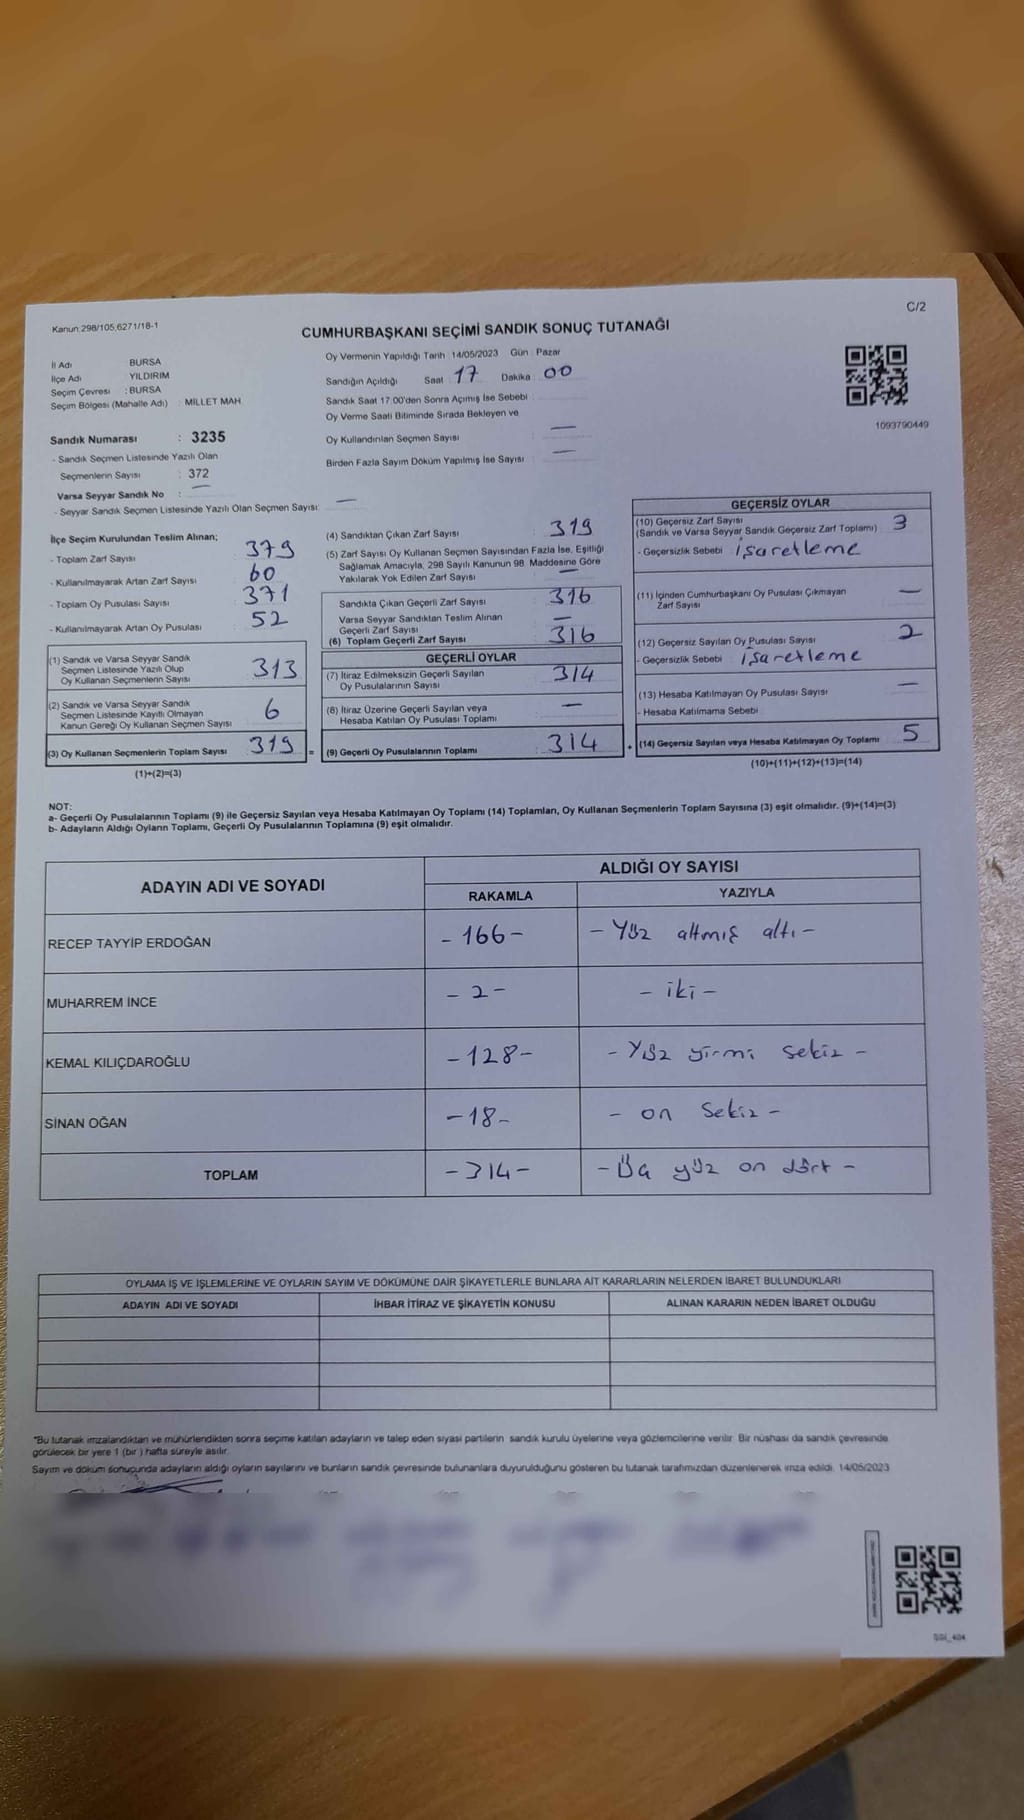 Kanun:298/105,6271/18-1
C/2
CUMHURBAŞKANI SEÇİMİ SANDIK SONUÇ TUTANAĞI
İl Adı BURSA
İlçe Adı YILDIRIM
Seçim Çevresi : BURSA
Seçim Bölgesi (Mahalle Adı) : MİLLET MAH
Sandık Numarası : 3235
- Sandık Seçmen Listesinde Yazılı Olan
Seçmenlerin Sayısı : 372
Varsa Seyyar Sandık No : —
- Seyyar Sandık Seçmen Listesinde Yazılı Olan Seçmen Sayısı: —
Oy Vermenin Yapıldığı Tarih 14/05/2023 Gün : Pazar
Sandığın Açıldığı Saat 17 Dakika 00
Sandık Saat 17:00'den Sonra Açımış İse Sebebi :
Oy Verme Saati Bitiminde Sırada Bekleyen ve
Oy Kullandırılan Seçmen Sayısı : —
Birden Fazla Sayım Döküm Yapılmış İse Sayısı : —
1093790449
İlçe Seçim Kurulundan Teslim Alınan;
- Toplam Zarf Sayısı 379
- Kullanılmayarak Artan Zarf Sayısı 60
- Toplam Oy Pusulası Sayısı 371
- Kullanılmayarak Artan Oy Pusulası 52
(1) Sandık ve Varsa Seyyar Sandık
Seçmen Listesinde Yazılı Olup
Oy Kullanan Seçmenlerin Sayısı 313
(2) Sandık ve Varsa Seyyar Sandık
Seçmen Listesinde Kayıtlı Olmayan
Kanun Gereği Oy Kullanan Seçmen Sayısı 6
(3) Oy Kullanan Seçmenlerin Toplam Sayısı 319 =
(1)+(2)=(3)
(4) Sandıktan Çıkan Zarf Sayısı : 319
(5) Zarf Sayısı Oy Kullanan Seçmen Sayısından Fazla İse, Eşitliği
Sağlamak Amacıyla, 298 Sayılı Kanunun 98. Maddesine Göre
Yakılarak Yok Edilen Zarf Sayısı : —
Sandıkta Çıkan Geçerli Zarf Sayısı : 316
Varsa Seyyar Sandıktan Teslim Alınan
Geçerli Zarf Sayısı : —
(6) Toplam Geçerli Zarf Sayısı : 316
GEÇERLİ OYLAR
(7) İtiraz Edilmeksizin Geçerli Sayılan
Oy Pusulalarının Sayısı : 314
(8) İtiraz Üzerine Geçerli Sayılan veya
Hesaba Katılan Oy Pusulası Toplamı : —
(9) Geçerli Oy Pusulalarının Toplamı : 314 +
GEÇERSİZ OYLAR
(10) Geçersiz Zarf Sayısı
(Sandık ve Varsa Seyyar Sandık Geçersiz Zarf Toplamı) : 3
- Geçersizlik Sebebi : işaretleme
(11) İçinden Cumhurbaşkanı Oy Pusulası Çıkmayan
Zarf Sayısı : —
(12) Geçersiz Sayılan Oy Pusulası Sayısı : 2
- Geçersizlik Sebebi : işaretleme
(13) Hesaba Katılmayan Oy Pusulası Sayısı : —
- Hesaba Katılmama Sebebi :
(14) Geçersiz Sayılan veya Hesaba Katılmayan Oy Toplamı : 5
(10)+(11)+(12)+(13)=(14)
NOT:
a- Geçerli Oy Pusulalarının Toplamı (9) ile Geçersiz Sayılan veya Hesaba Katılmayan Oy Toplamı (14) Toplamları, Oy Kullanan Seçmenlerin Toplam Sayısına (3) eşit olmalıdır. (9)+(14)=(3)
b- Adayların Aldığı Oyların Toplamı, Geçerli Oy Pusulalarının Toplamına (9) eşit olmalıdır.
ADAYIN ADI VE SOYADI
ALDIĞI OY SAYISI
RAKAMLA YAZIYLA
RECEP TAYYİP ERDOĞAN - 166 - - Yüz altmış altı -
MUHARREM İNCE - 2 - - iki -
KEMAL KILIÇDAROĞLU - 128 - - Yüz yirmi sekiz -
SİNAN OĞAN - 18 - - on sekiz -
TOPLAM - 314 - - Üç yüz on dört -
OYLAMA İŞ VE İŞLEMLERİNE VE OYLARIN SAYIM VE DÖKÜMÜNE DAİR ŞİKAYETLERLE BUNLARA AİT KARARLARIN NELERDEN İBARET BULUNDUKLARI
ADAYIN ADI VE SOYADI İHBAR İTİRAZ VE ŞİKAYETİN KONUSU ALINAN KARARIN NEDEN İBARET OLDUĞU
"Bu tutanak imzalandıktan ve mühürlendikten sonra seçime katılan adayların ve talep eden siyasi partilerin sandık kurulu üyelerine veya gözlemcilerine verilir. Bir nüshası da sandık çevresinde
görülecek bir yere 1 (bir ) hafta süreyle asılır.
Sayım ve döküm sonuçunda adayların aldığı oyların sayılarını ve bunların sandık çevresinde bulunanlara duyurulduğunu gösteren bu tutanak tarafımızdan düzenlenerek imza edildi. 14/05/2023